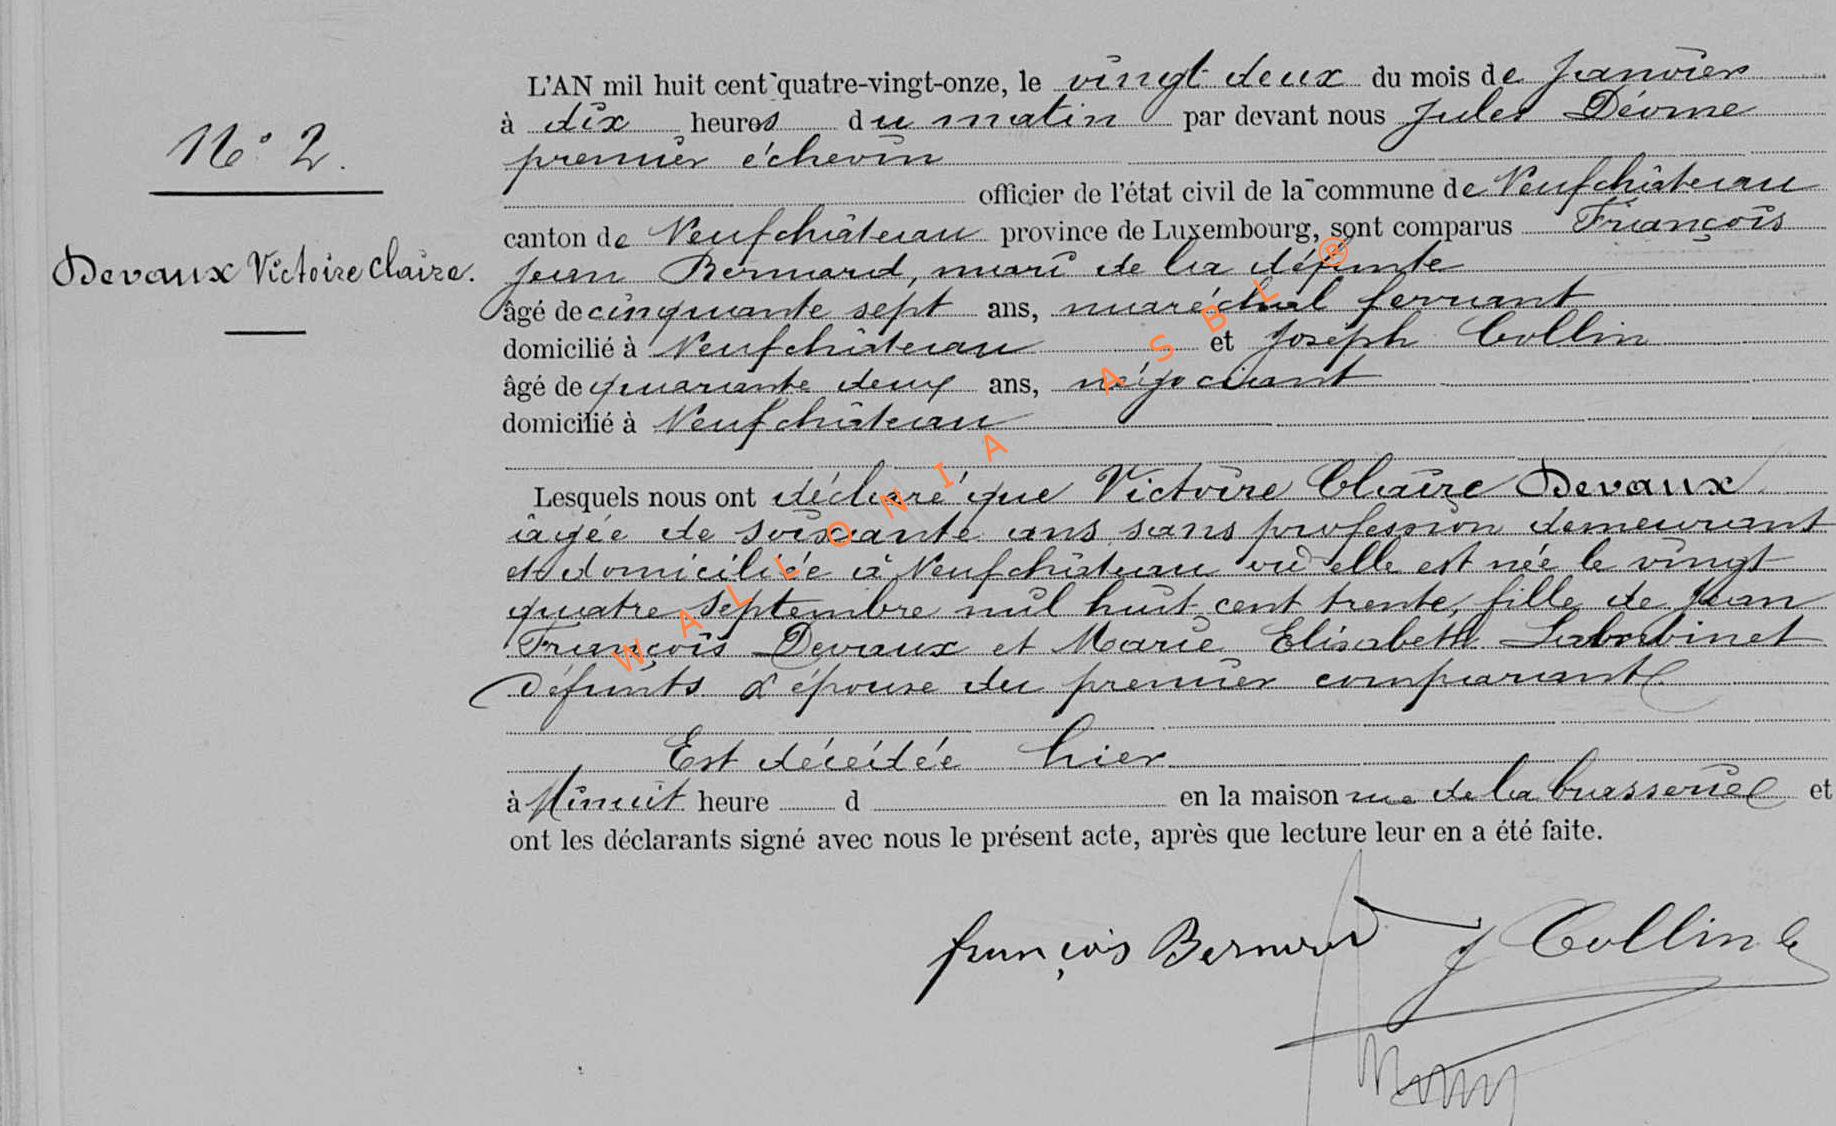 N° 2.
Devaux Victoire Claire.
L'AN mil huit cent quatre-vingt-onze, le vingt deux du mois de Janvier
à dix heures du matin par devant nous Jules
premier échevin
officier de l'état civil de la commune de Neufchâteau
canton de Neufchâteau province de Luxembourg, sont comparus François
Jean Bernard, mari de la défunte
âgé de cinquante sept ans, maréchal ferrant
domicilié à Neufchâteau et Joseph Collin
âgé de quarante deux ans, négociant
domicilié à Neufchâteau
Lesquels nous ont déclaré que Victoire Claire Devaux
âgée de soixante ans sans profession demeurant
et domiciliée à Neufchâteau où elle est née le vingt
quatre septembre mil huit cent trente, fille de Jean
François Devaux et Marie Elisabeth
défunts & épouse du premier comparant
Est décédée hier
à Minuit heure d en la maison rue de la brasserie et
ont les déclarants signé avec nous le présent acte, après que lecture leur en a été faite.
françois Bernard J Collin
WALLONIA ASBL ®